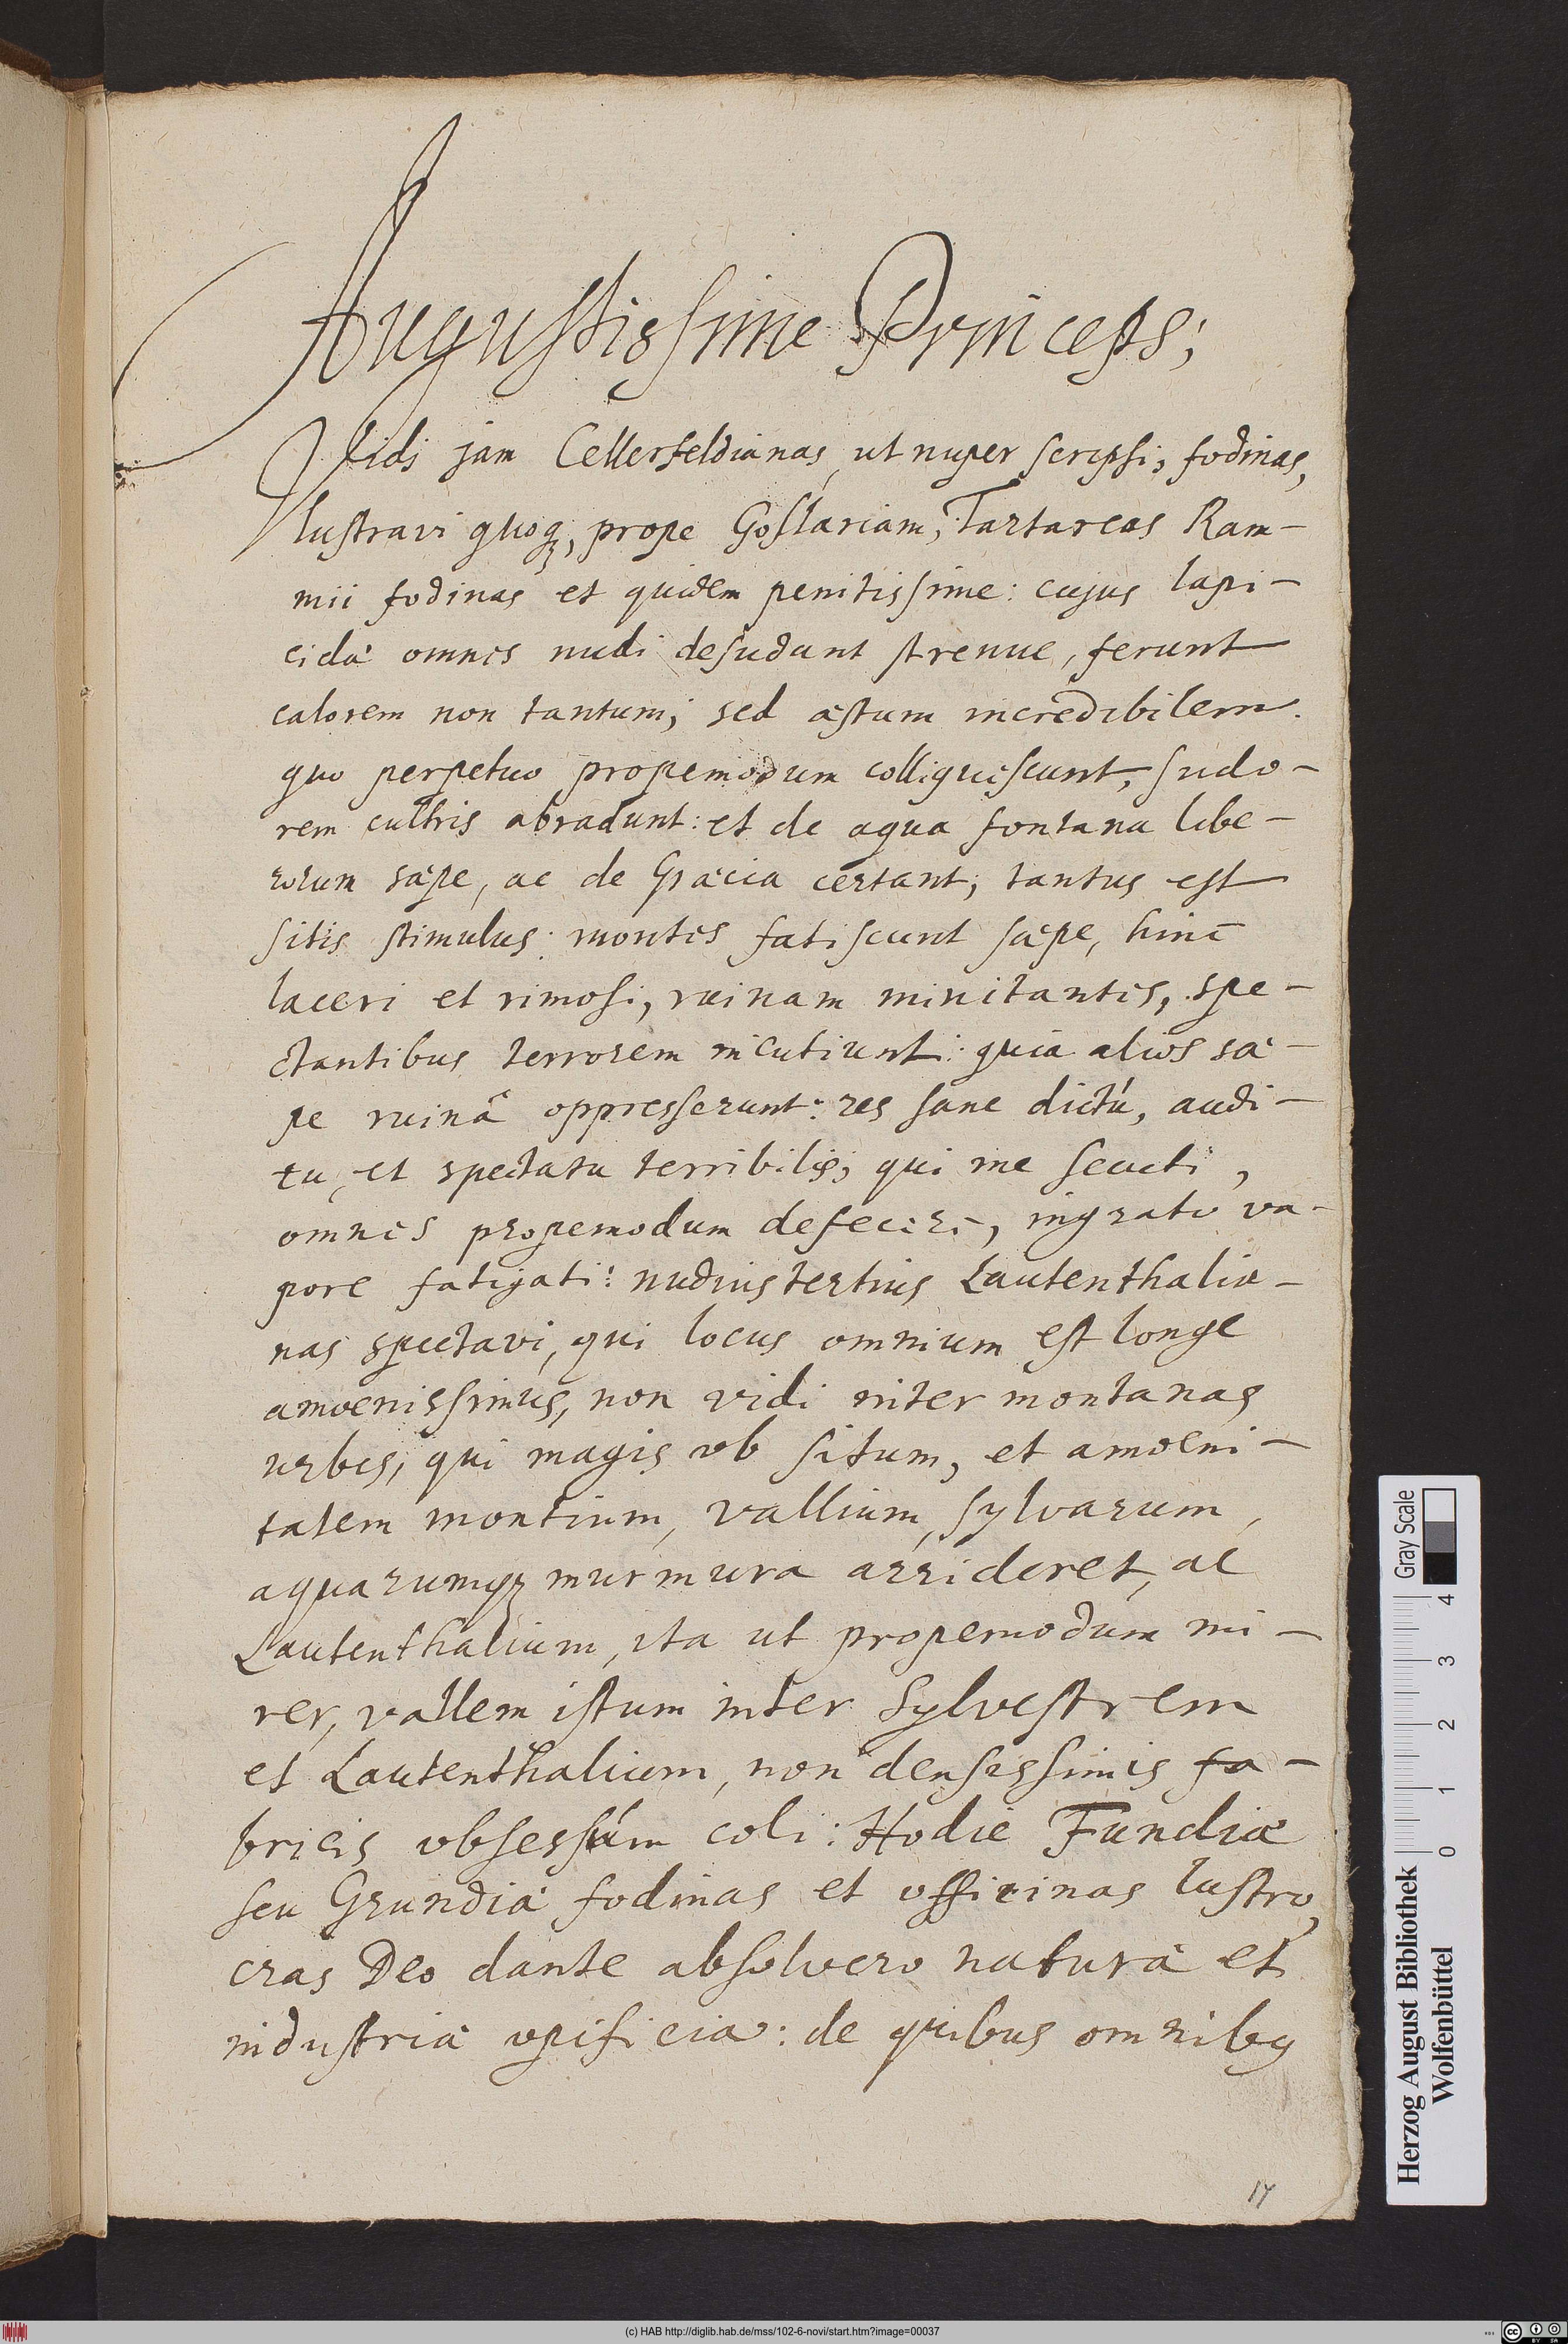 Augustissime Princeps;
Vidi jam Cellerfeldianas, ut nuper scripsi, fodinas,
lustravi quoq, prope Goslariam, Tartareas Ram-
mii fodinas et quidem penitissime: cujus lapi-
cidæ omnes nudi desudant strenue, ferunt
calorem non tantum; sed æstum incredibilem.
quo perpetuo propemodum colliquescunt, sudo-
rem cultris abradunt: et de aqua fontana libe-
rorum sæpe, ac de Græcia certant; tantus est
sitis stimulus: montes fatiscunt sæpe, hinc
laceri et rimosi, ruinam minitantes, spe-
ctantibus terrorem incutiunt: quia alios sæ-
pe ruinâ oppresserunt: res sane dictu, audi-
tu, et spectatu terribilis; qui me secuti,
omnes propemodum defecere, ingrato va-
pore fatigati: nudiustertius Lautenthalia-
nas spectavi, qui locus omnium est longe
amoenissimus, non vidi inter montanas
urbes, qui magis ob situm, et amoeni-
tatem montium, vallium, sylvarum,
aquarumq murmura arrideret, ac
Lautenthalium, ita ut propemodum mi-
rer, vallem istum inter Sylvestrem
et Lautenthalium, non densissimis fa-
bricis obsessum coli: Hodie Fundiæ
seu Grundiæ fodinas et officinas lustro,
cras Deo dante absolvero naturæ et
industriæ opificia: de quibus omnibq
17
Gray Scale
0 1 2 3 4
Herzog August Bibliothek
Wolfenbüttel
(c) HAB http://diglib.hab.de/mss/102-6-novi/start.htm?image=00037